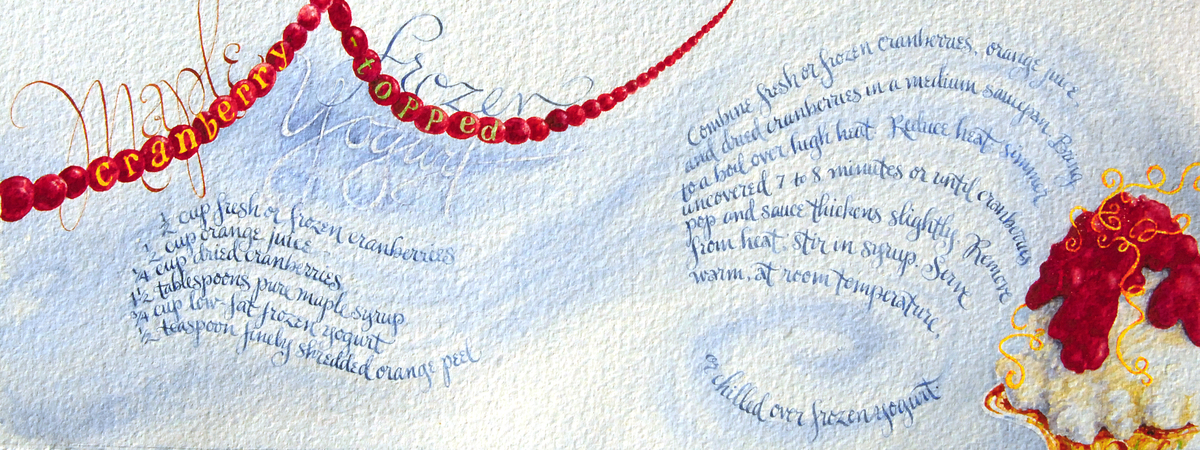 Maple
cranberry-topped
Frozen
Yogurt
½ cup fresh or frozen cranberries
½ cup orange juice
¼ cup dried cranberries
1½ tablespoons pure maple syrup
¾ cup low-fat frozen yogurt
½ teaspoon finely shredded orange peel
Combine fresh or frozen cranberries, orange juice,
and dried cranberries in a medium saucepan. Bring
to a boil over high heat. Reduce heat: simmer
uncovered 7 to 8 minutes or until cranberries
pop and sauce thickens slightly. Remove
from heat: stir in syrup. Serve
warm, at room temperature,
or chilled over frozen yogurt.